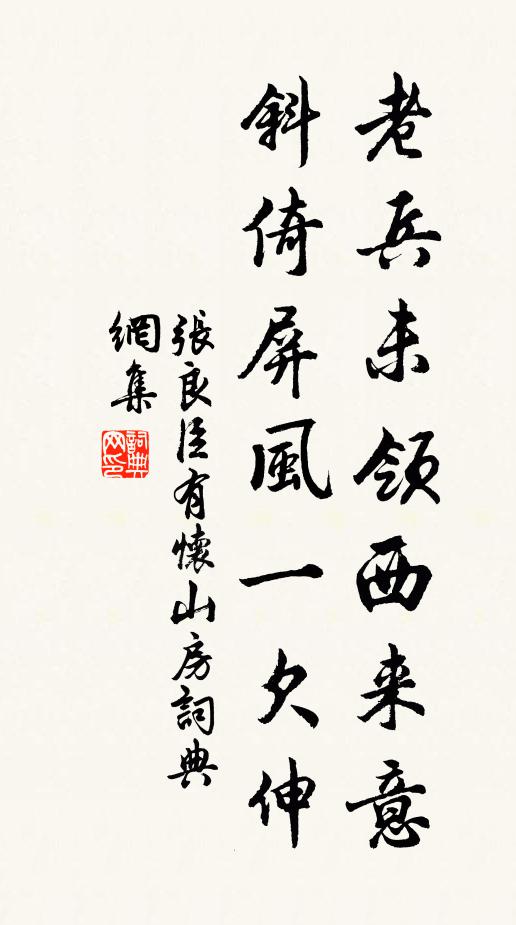 老兵未領西来意
斜倚屏風一欠伸
張良臣有懷山房詞典
網集
詞典
网印